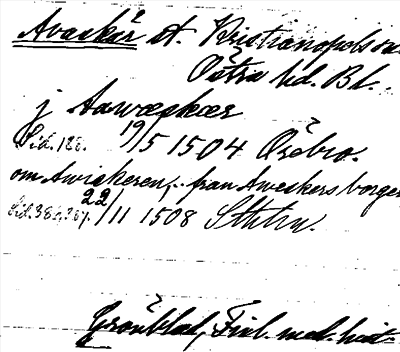 Avaskär st. Kristianopols sn.
Östra hd. Bl.
j Aawæskær
Sid. 188. 19/5 1504 Örebro.
om Awiskeren, .. fran Aweskers borger
22/11 1508 Sthlm.
Grönblad, Finl. med. hist.